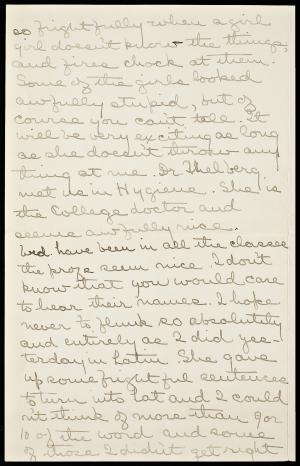 so frightfully when a girl
girl doesn't know the things,
and fires chock at them.
Some of the girls looked
awfully stupid, but of
course you can't tell. It
will be very exciting as long
as she doesn't throw any
thing at me. Dr. Thelberg
met us in Hygiene. She is
the College doctor and
seems awfully nice.
Wed. have been in all the classes
the profs seem nice. I don't
know that you would care
to hear their names. I hope
never to flunk so absolutely
and entirely as I did yes-
terday in Latin. She gave
up some frightful sentences
to turn into Lat and I could
n't think of more than 9 or
10 of the word and some
of those I didn't get right